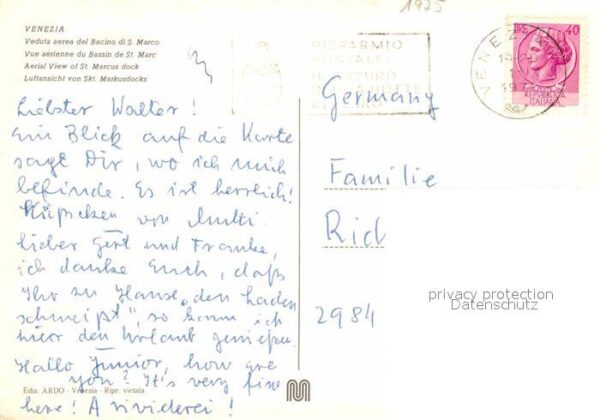 1975
VENEZIA
Veduta aerea del Bacino di S. Marco
Vue aérienne du Bassin de St. Marc
Aerial View of St. Marcus dock
Luftansicht von Skt. Markusdocks
RISPARMIO
POSTALE
IL FUTURO
VENEZIA
197
LIRE 40
Liebster Walter!
Ein Blick auf die Karte
sagt Dir, wo ich mich
befinde. Es ist herrlich!
Küßchen von Multi
lieber Gert und Frauke,
ich danke Euch, daß
Ihr zu Hause „den Laden
schmeißt", so kann ich
hier den Urlaub genießen.
Hallo Junior, how are
you? It's very fine
here! A rividerei!
Germany
Familie
Rid
2984
privacy protection
Datenschutz
Ediz. ARDO - Venezia - Ripr. vietata